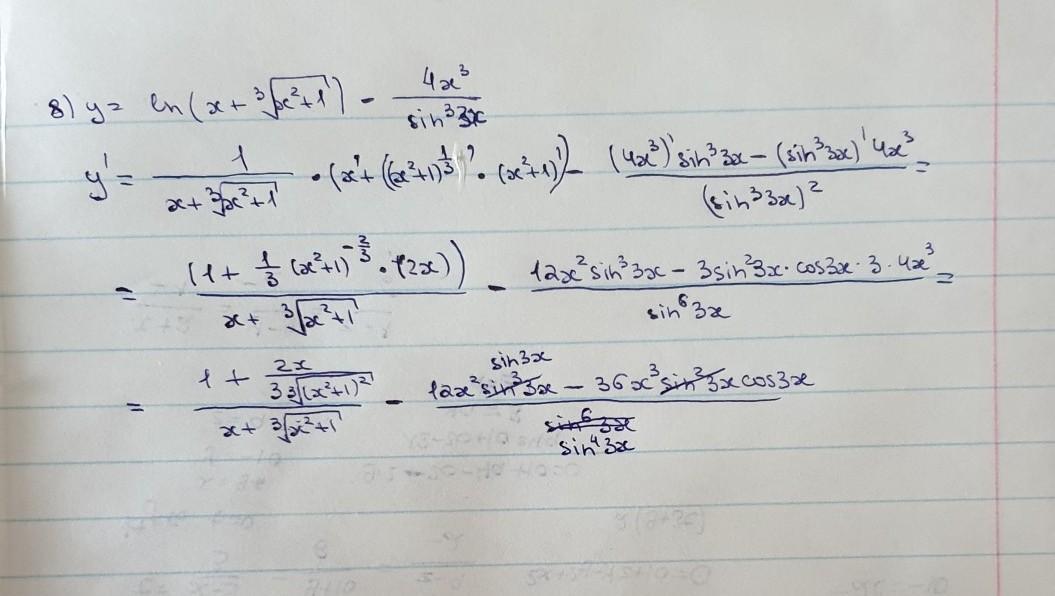 8) y = ln(x + ∛(x²+1)) - 4x³/sin³3x
y' = 1/(x + ∛(x²+1)) · (x' + ((x²+1)^(1/3))' · (x²+1)') - ((4x³)' sin³3x - (sin³3x)' 4x³)/(sin³3x)² =
= (1 + 1/3 (x²+1)^(-2/3) · (2x))/(x + ∛(x²+1)) - (12x² sin³3x - 3sin²3x · cos3x · 3 · 4x³)/sin⁶3x =
sin3x
= (1 + 2x/(3∛(x²+1)²))/(x + ∛(x²+1)) - (12x² sin³3x - 36x³ sin²3x cos3x)/sin⁶3x
sin⁴3x